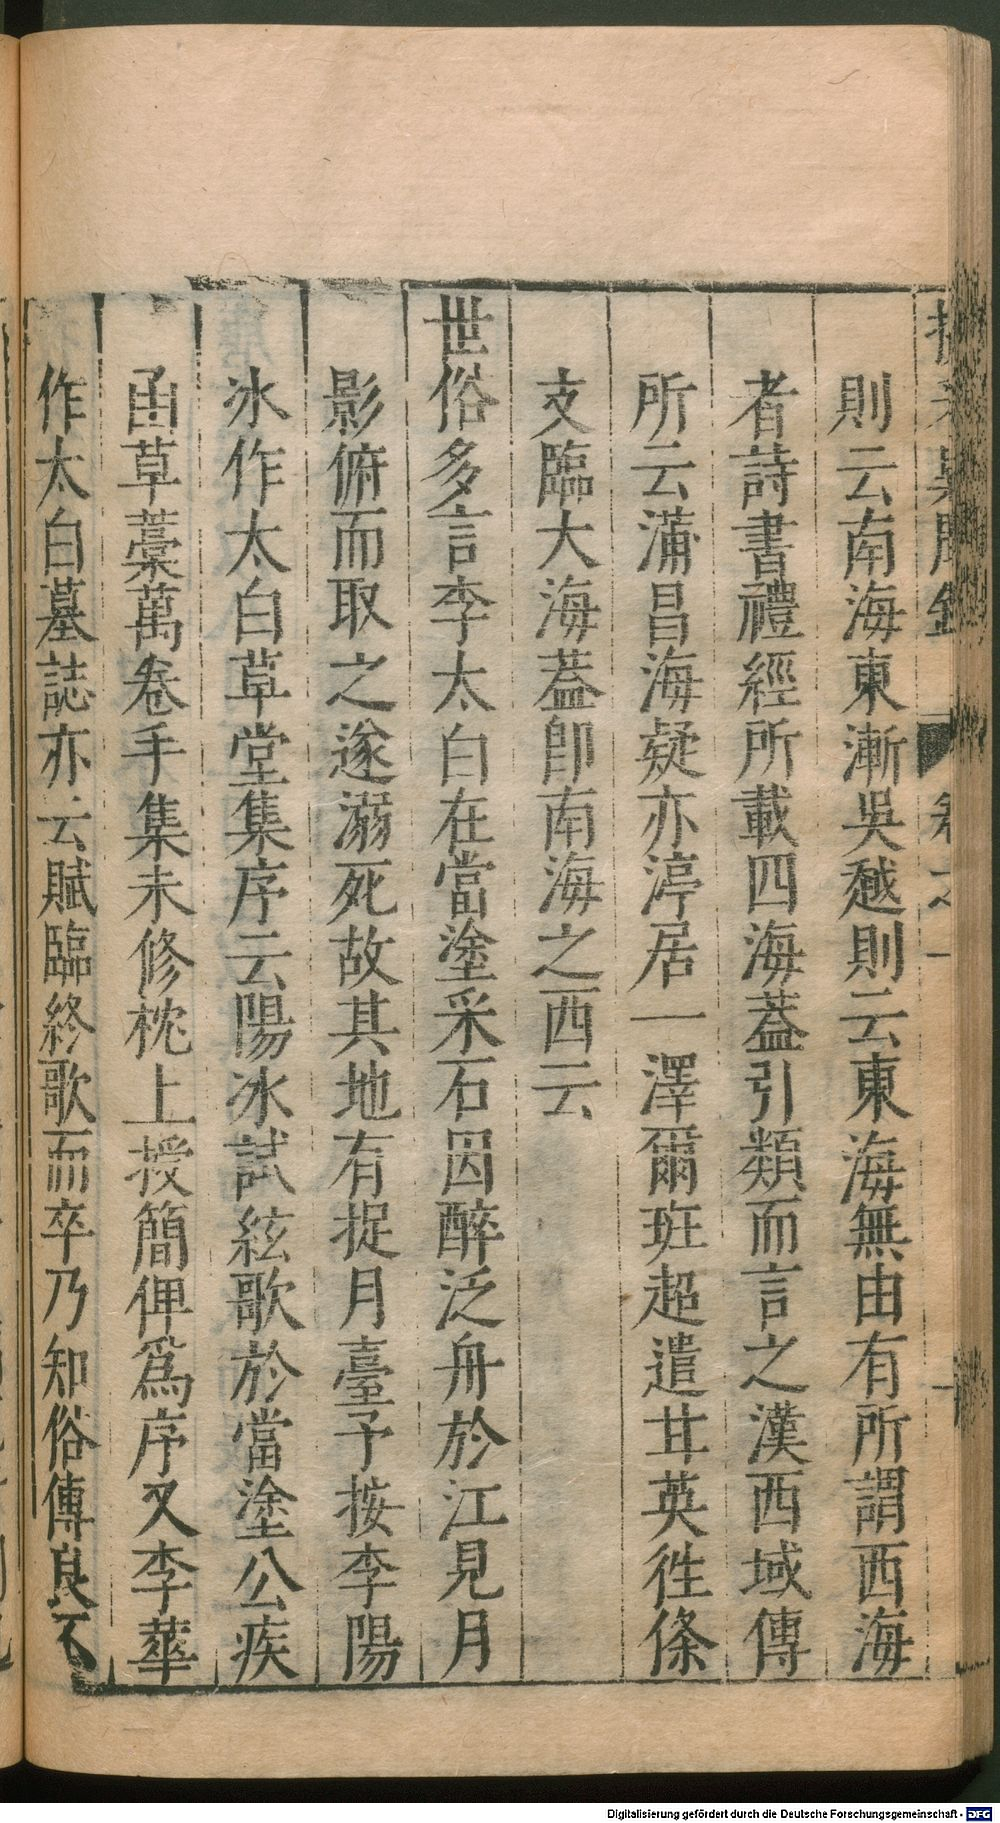 則云南海東漸吳越則云東海無由有所謂西海
者詩書禮經所載四海蓋引類而言之漢西域傳
所云蒲昌海疑亦渟居一澤爾班超遣甘英徃條
支臨大海蓋卽南海之西云
世俗多言李太白在當塗采石因醉泛舟於江見月
影俯而取之遂溺死故其地有捉月臺予按李陽
冰作太白草堂集序云陽冰試絃歌於當塗公疾
亟草藁萬卷手集未修枕上授簡俾爲序又李華
作太白墓誌亦云賦臨終歌而卒乃知俗傳良不
Digitalisierung gefördert durch die Deutsche Forschungsgemeinschaft - DFG